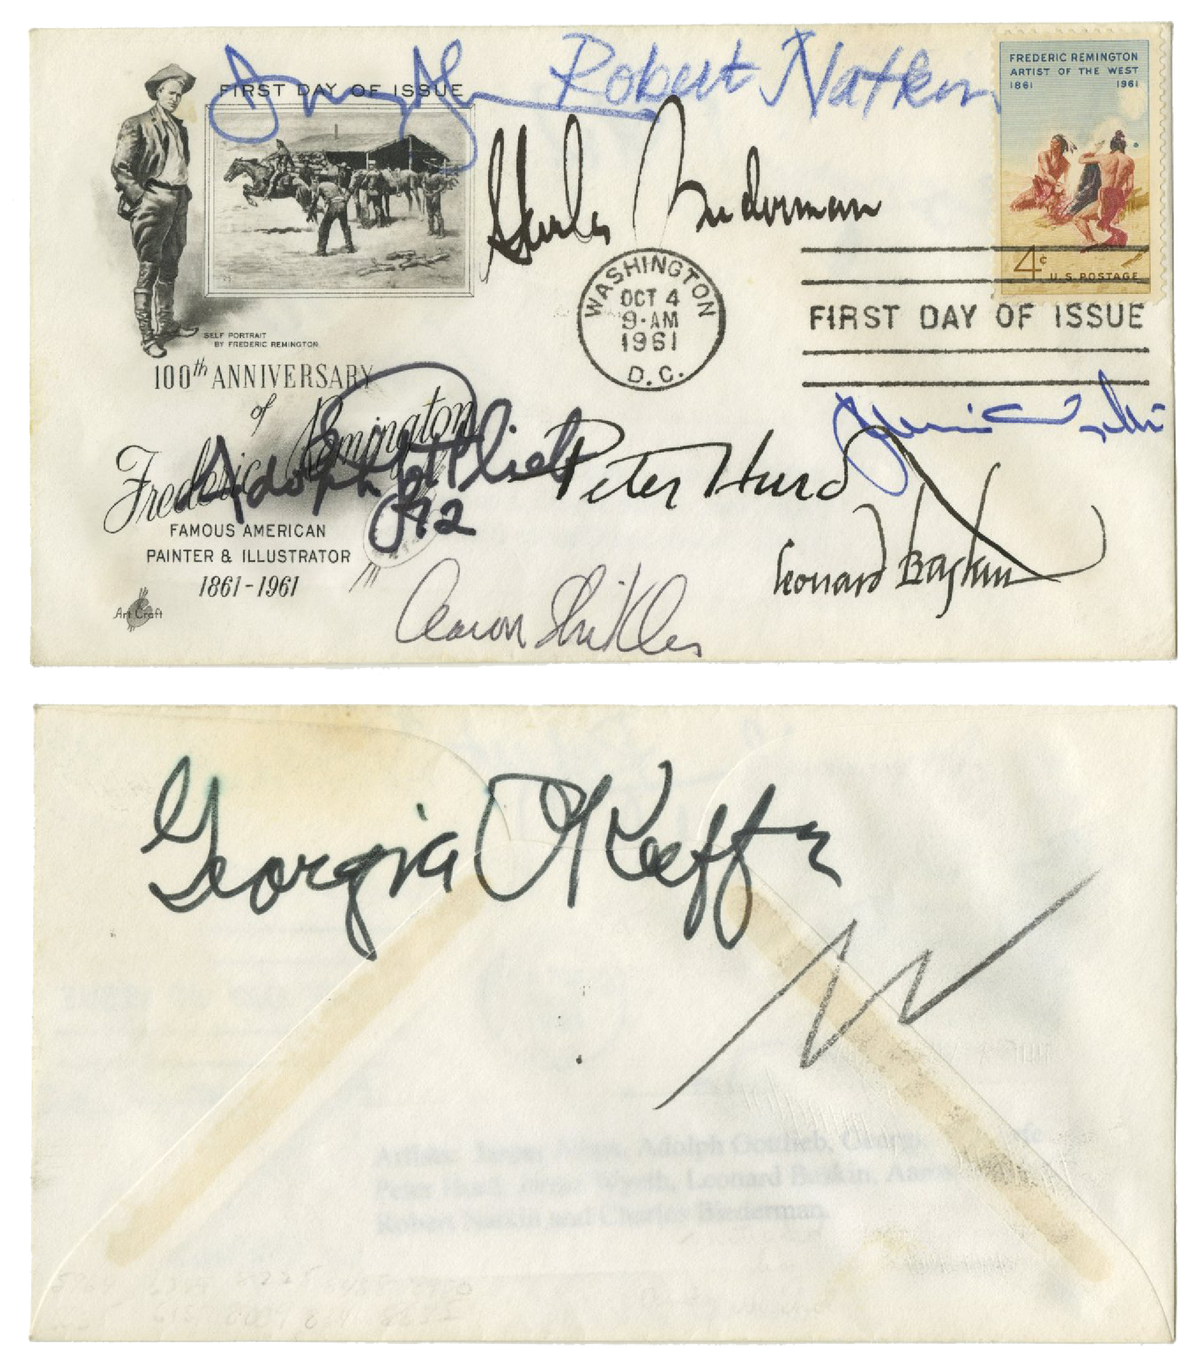 FIRST DAY OF ISSUE
Robert Natkin
FREDERIC REMINGTON
ARTIST OF THE WEST
1861 1961
4¢ U.S. POSTAGE
Charles Biederman
WASHINGTON
OCT 4
9-AM
1961
D.C.
FIRST DAY OF ISSUE
SELF PORTRAIT
BY FREDERIC REMINGTON
100th ANNIVERSARY
of
Frederic Remington
FAMOUS AMERICAN
PAINTER & ILLUSTRATOR
1861-1961
Art Craft
Adolph Gottlieb
Peter Hurd
Leonard Baskin
Aaron Shikler
Georgia O'Keeffe
Artists: Adolph Gottlieb,
Peter Hurd, Wyeth, Leonard Baskin,
Robert Natkin and Charles Biederman.